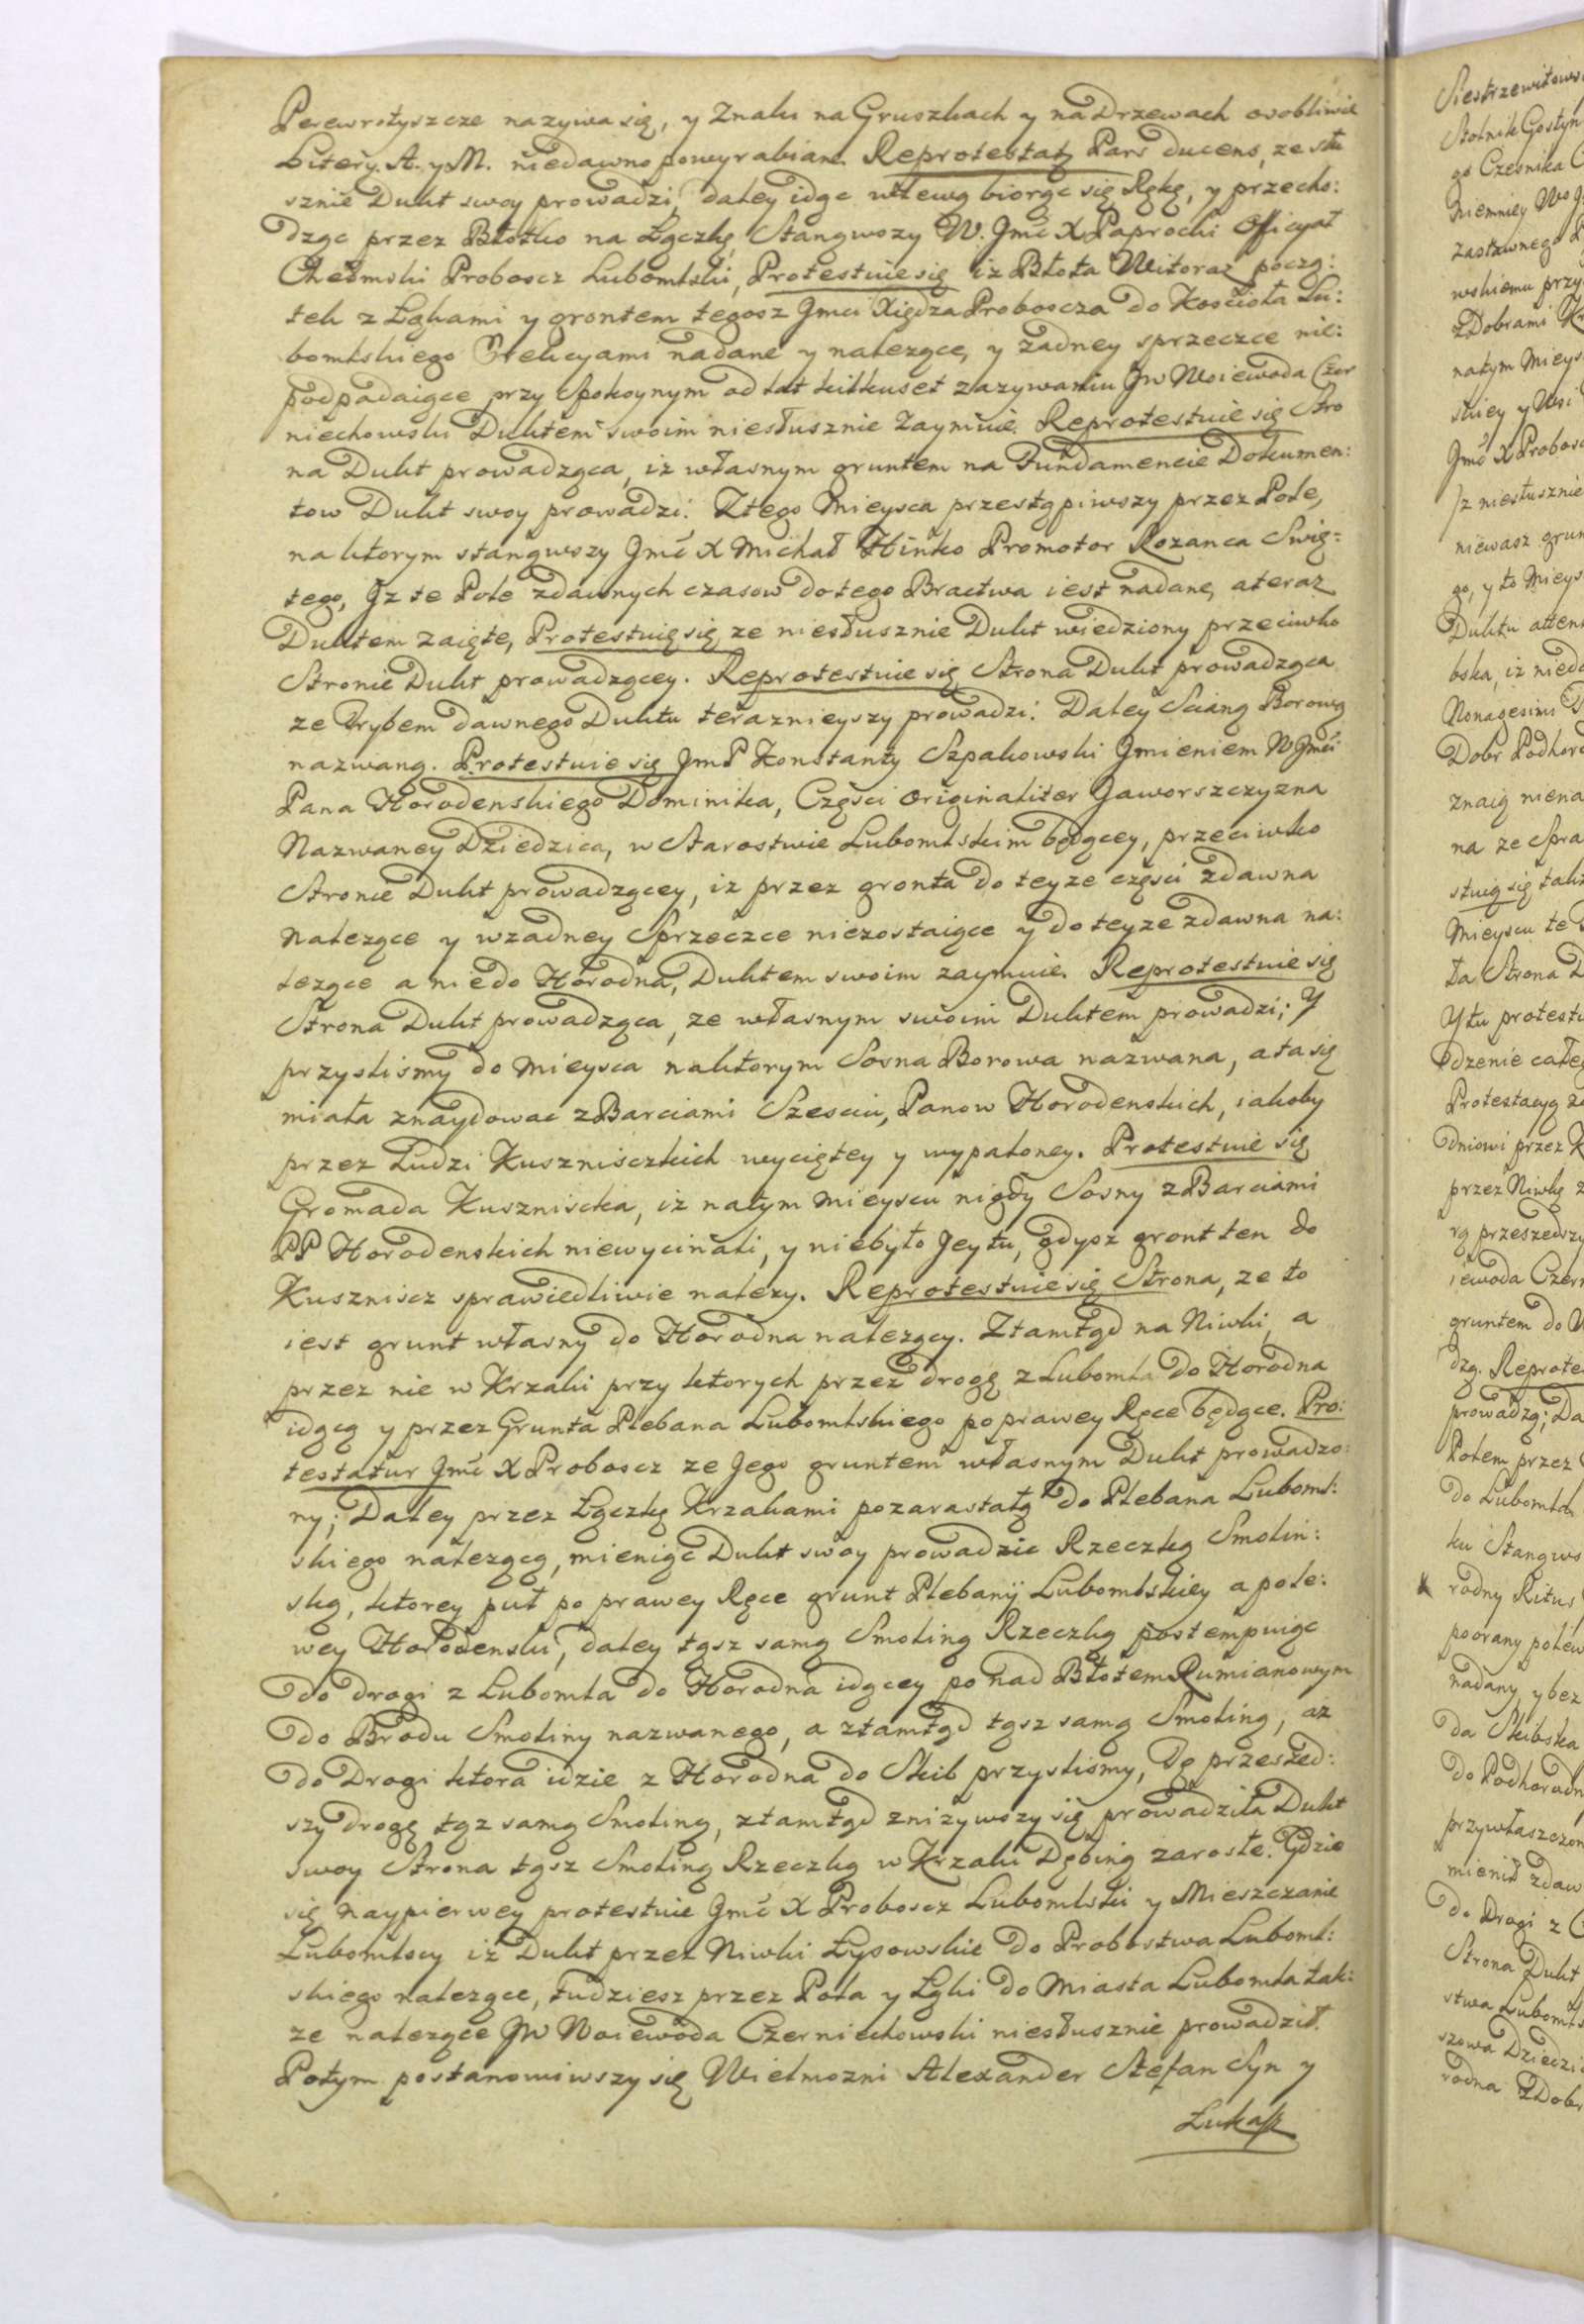 Perewrotyszcze nazywa się, y Znaki na Gruszkach y na Drzewach osobliwie
Litery. A. y M. niedawno powyrabiane. Reprotestatᵣ Pars ducens, ze słu
sznie Dukt swoy prowadzi, daley idąc wlewą biorąc się Rękę, y przecho:
dząc przez Błotko na Łączkę Stanąwszy W. Jmć X Paprocki Officyał
Chełmski Proboscz Lubomlski, Protestuie się iz Błota Witoraz począ:
tek z Łąkami y grontem tegosz Jmci Xiędza Proboscza do Koscioła Lu:
bomlskiego Erekcyami nadane y nalezące, y żadney sprzeczce nie:
podpadaiące przy Spokoynym od lat kilkuset zazywaniu Jw Woiewoda Czer
niechowski Duktem swoim niesłusznie Zaymuie. Reprotestuie się Stro
na Dukt prowadząca, iz własnym gruntem na Fundamencie Dokumen:
tow Dukt swoy prowadzi. Ztego Mieysca przestąpiwszy przez Pole,
na ktorym stanąwszy Jmć X Michał Hinko Promotor Rozanca Swię=
tego, Jz te Pole zdawnych czasow do tego Bractwa iest nadane, ateraz
Duktem zaięte, Protestuię się ze niesłusznie Dukt wiedziony przeciwko
Stronie Dukt prowadzącey. Reprotestuie się Strona Dukt prowadząca
ze Trybem dawnego Duktu teraznieyszy prowadzi. Daley Scianą Borową
nazwaną. Protestuie się JmP Konstanty Szpakowski Jmieniem WJmci
Pana Horodenskiego Dominika, Częsci originaliter Jaworszczyzna
Nazwaney Dziedzica, w Starostwie Lubomlskim będącey, przeciwko
Stronie Dukt prowadzącey, iz przez gronta do teyze częsci zdawna
Nalezące y wzadney Sprzeczce niezostaiące y do teyze zdawna na:
lezące a niedo Horodna, Duktem swoim zaymuie. Reprotestuie się
Strona Dukt prowadząca, ze własnym swoim Duktem prowadzi; Y
przyslismy do Mieysca naktorym Sosna Borowa nazwana, a ta się
miała znaydowac z Barciami Szesciu, Panow Horodenskich, iakoby
przez Ludzi Kuszniszczkich wyciętey y wypaloney. Protestuie się
Gromada Kuszniscka, iz natym Mieyscu nigdy Sosny z Barciami
PP Horodenskich niewycinali, y niebyło Jey tu, gdysz gront ten do
Kuszniscz sprawiedliwie nalezy. Reprotestuie się Strona, ze to
iest grunt własny do Horodna nalezący. Ztamtąd na Niwki, a
przez nie w Krzaki przy ktorych przez drogę z Lubomla do Horodna
idącą y przez Grunta Plebana Lubomlskiego po prawey Ręce będące. Pro:
testatur Jmć X Proboscz ze Jego gruntem własnym Dukt prowadzo:
ny; Daley przez Łączkę Krzakami pozarastałą do Plebana Luboml:
skiego nalezącą, mieniąc Dukt swoy prowadzic Rzeczką Smolin:
ską, ktorey put po prawey Ręce grunt Plebanij Lubomlskiey a po le:
wey Horodenski, daley tąsz samą Smoliną Rzeczką postempuiąc
do drogi z Lubomla do Horodna idącey po nad Błotem Rumianowym
do Brodu Smoliny nazwanego, a ztamtąd tąsz samą Smoliną, az
do Drogi ktora idzie z Horodna do Skib przyslismy, Tę przeszed:
szy drogę tąz samą Smoliną, ztamtąd znizywszy się prowadziła Dukt
swoy Strona tąsz Smoliną Rzeczką w Krzaki Dębiną zarosłe. Gdzie
się naypierwey protestuie Jmć X Proboscz Lubomlski y Mieszczanie
Lubomlscy iz Dukt przez Niwki Łysowskie do Probostwa Luboml:
skiego nalezące, tudziesz przez Pola y Łąki do Miasta Lubomla tak:
ze nalezące JW Woiewoda Czerniechowski niesłusznie prowadził.
Potym postanowiwszy się Wielmozni Alexander Stefan Syn y
Łukasz